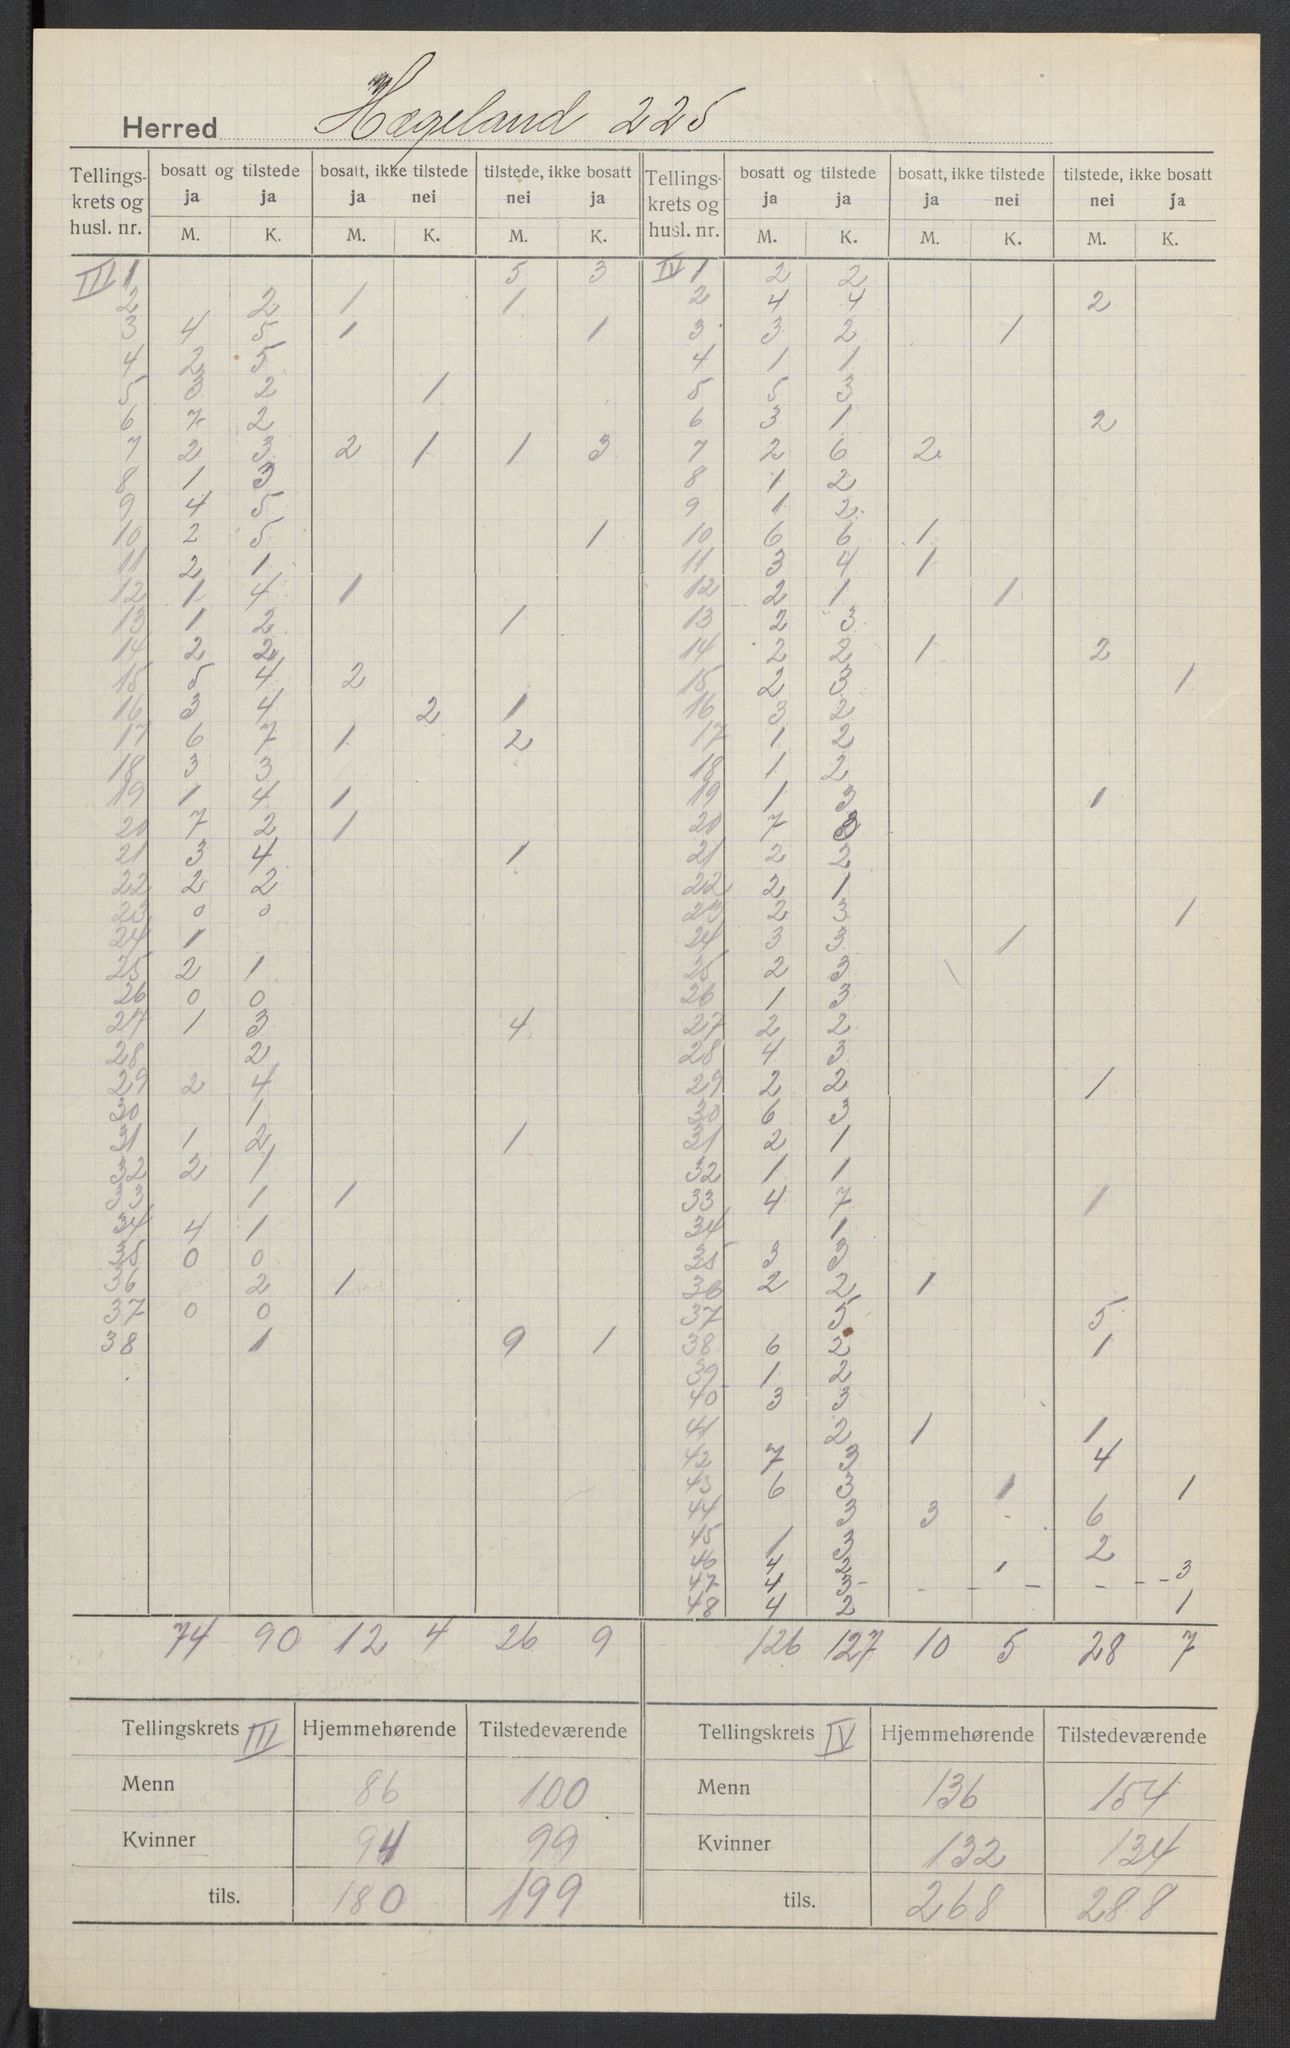 Herred Hægeland 225
Tellings- krets og husl. nr. | bosatt og tilstede ja ja M. K. | bosatt, ikke tilstede ja nei M. K. | tilstede, ikke bosatt nei ja M. K. | Tellings- krets og husl. nr. | bosatt og tilstede ja ja M. K. | bosatt, ikke tilstede ja nei M. K. | tilstede, ikke bosatt nei ja M. K.
III 1 | | | | | 5 | 3 | IV 1 | 2 | 2 | | | |
2 | | 2 | 1 | | 1 | | 2 | 4 | 4 | | | 2 |
3 | 4 | 5 | 1 | | | 1 | 3 | 3 | 2 | | 1 | |
4 | 2 | 5 | | | | | 4 | 1 | 1 | | | |
5 | 3 | 2 | | 1 | | | 5 | 5 | 3 | | | |
6 | 7 | 2 | | | | | 6 | 3 | 1 | | | 2 |
7 | 2 | 3 | 2 | 1 | 1 | 3 | 7 | 2 | 6 | 2 | | |
8 | 1 | 3 | | | | | 8 | 1 | 2 | | | |
9 | 4 | 5 | | | | | 9 | 1 | 2 | | | |
10 | 2 | 5 | | | | 1 | 10 | 6 | 6 | 1 | | |
11 | 2 | 1 | | | | | 11 | 3 | 4 | 1 | | |
12 | 1 | 4 | 1 | | | | 12 | 2 | 1 | | 1 | |
13 | 1 | 2 | | | 1 | | 13 | 2 | 3 | | | |
14 | 2 | 2 | | | | | 14 | 2 | 2 | 1 | | 2 |
15 | 5 | 4 | 2 | | | | 15 | 2 | 3 | | | | 1
16 | 3 | 4 | | 2 | 1 | | 16 | 3 | 2 | | | |
17 | 6 | 7 | 1 | | 2 | | 17 | 1 | 2 | | | |
18 | 3 | 3 | | | | | 18 | 1 | 2 | | | |
19 | 1 | 4 | 1 | | | | 19 | 1 | 3 | | | 1 |
20 | 7 | 2 | 1 | | | | 20 | 7 | 3 | | | |
21 | 3 | 4 | | | 1 | | 21 | 2 | 2 | | | |
22 | 2 | 2 | | | | | 22 | 2 | 1 | | | |
23 | 0 | 0 | | | | | 23 | 2 | 3 | | | | 1
24 | 1 | | | | | | 24 | 3 | 3 | | 1 | |
25 | 2 | 1 | | | | | 25 | 2 | 3 | | | |
26 | 0 | 0 | | | | | 26 | 1 | 3 | | | |
27 | 1 | 3 | | | 4 | | 27 | 2 | 2 | | | |
28 | | 2 | | | | | 28 | 4 | 3 | | | |
29 | 2 | 4 | | | | | 29 | 2 | 2 | | | 1 |
30 | | 1 | | | | | 30 | 6 | 3 | | | |
31 | 1 | 2 | | | 1 | | 31 | 2 | 1 | | | |
32 | 2 | 1 | | | | | 32 | 1 | 1 | | | |
33 | | 1 | 1 | | | | 33 | 4 | 7 | | | 1 |
34 | 4 | 1 | | | | | 34 | | 1 | | | |
35 | 0 | 0 | | | | | 35 | 3 | 3 | | | |
36 | | 2 | 1 | | | | 36 | 2 | 2 | 1 | | |
37 | 0 | 0 | | | | | 37 | | 5 | | | 5 |
38 | | 1 | | | 9 | 1 | 38 | 6 | 2 | | | 1 |
39 | 1 | 2
40 | 3 | 3
41 | | 2 | 1 | | 1 |
42 | 7 | 3 | | | 4 |
43 | 6 | 3 | | 1 | | 1
44 | | 3 | 3 | - | 6 |
45 | 1 | 3 | | | 2 |
46 | 4 | 2 | | 1 | | 3
47 | 4 | 3 - | - | - - | - | - -
48 | 4 | 2 | | | | 1
74 90 12 4 26 9 | 126 127 10 5 28 7
Tellingskrets III | Hjemmehørende | Tilstedeværende | Tellingskrets IV | Hjemmehørende | Tilstedeværende
Menn | 86 | 100 | Menn | 136 | 154
Kvinner | 94 | 99 | Kvinner | 132 | 134
tils. | 180 | 199 | tils. | 268 | 288